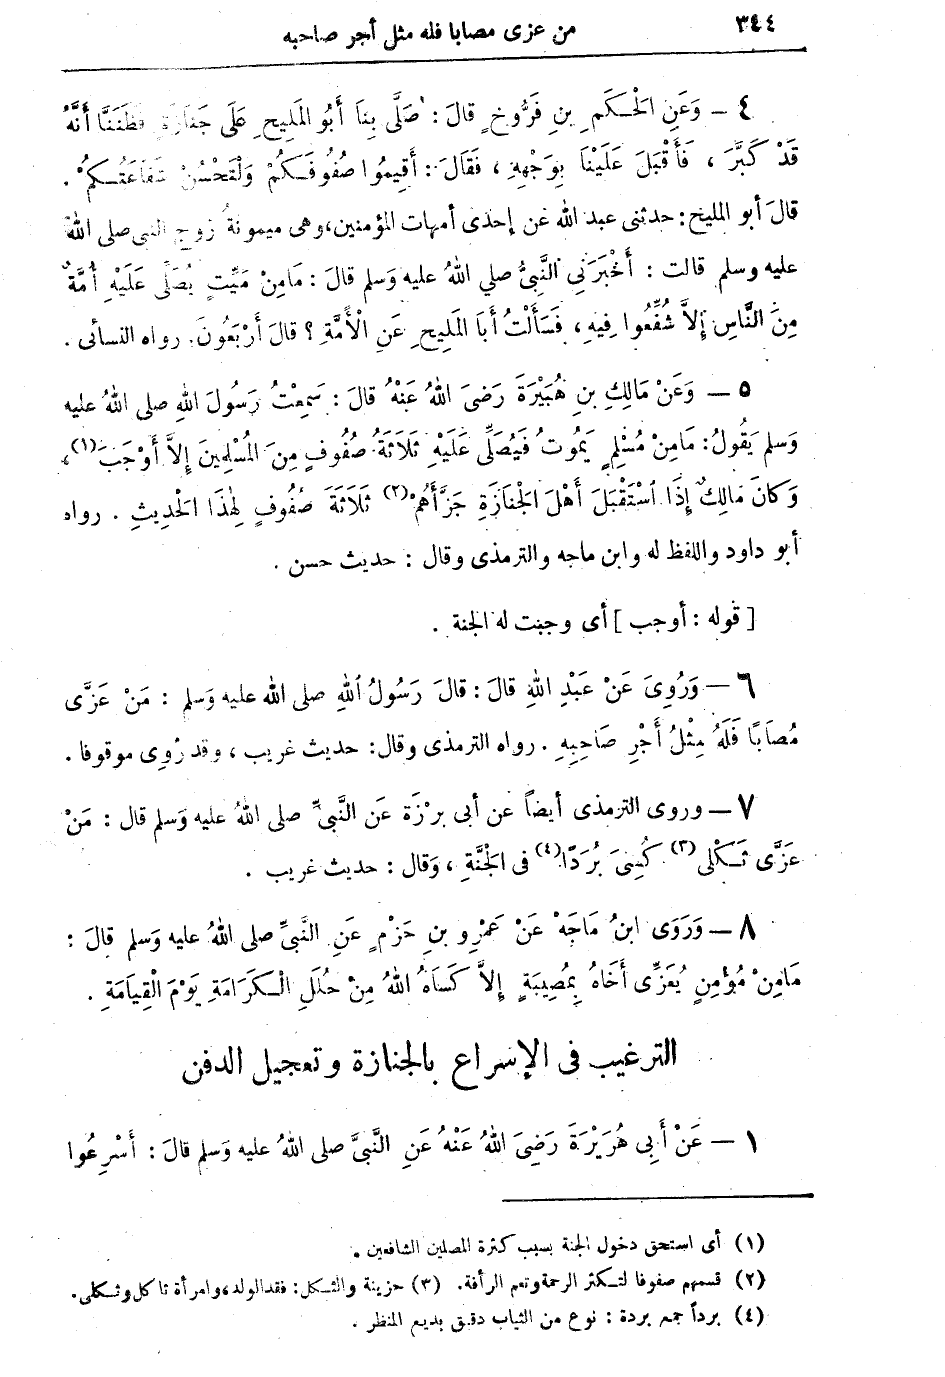 ٣٤٤ من عزى مصابا فله مثل أجر صاحبه
٤ – وَعَنِ الْحَكَمِ بنِ فَرُّوخٍ قالَ: صَلَّى بِنَا أَبُو المَلِيحِ عَلَى جَنَازَةٍ فَظَنَنَّا أَنَّهُ
قَدْ كَبَّرَ ، فَأَقْبَلَ عَلَيْنَا بِوَجْهِهِ ، فَقَالَ: أَقِيمُوا صُفُوفَكُمْ وَلْتَحْسُنْ شَفَاعَتُكُمْ .
قالَ أبو المليح: حدثنى عبد الله عن إحدى أمهات المؤمنين، وهى ميمونة زوج النبى صلى الله
عليه وسلم قالت : أَخْبَرَنِي النَّبِيُّ صلي اللهُ عليه وسلم قالَ : مَامِنْ مَيِّتٍ يُصَلِّى عَلَيْهِ أُمَّةٌ
مِنَ النَّاسِ إِلاَّ شُفِّعُوا فِيهِ ، فَسَأَلْتُ أَبَا المَلِيحِ عَنِ الْأُمَّةِ ؟ قالَ أَرْبَعُونَ. رواه النسائى .
٥ – وَعَنْ مَالِكِ بنِ هُبَيْرَةَ رَضِىَ اللهُ عَنْهُ قالَ : سَمِعْتُ رَسُولَ اللهِ صلى اللهُ عليه
وَسلم يَقُولُ: مَامِنْ مُسْلِمٍ يَمُوتُ فَيُصَلِّى عَلَيْهِ ثَلَاثَةُ صُفُوفٍ مِنَ المُسْلِمِينَ إِلاَّ أَوْجَبَ (١) ،
وَكانَ مَالِكٌ إِذَا اسْتَقْبَلَ أَهْلَ الْجَنَازَةِ جَزَّأَهُمْ (٢) ثَلَاثَةَ صُفُوفٍ لِهٰذَا الْحَدِيثِ . رواه
أبو داود واللفظ له وابن ماجه والترمذى وقال : حديث حسن .
[ قوله : أوجب ] أى وجبت له الجنة .
٦ – وَرُوِىَ عَنْ عَبْدِ اللهِ قالَ : قالَ رَسُولُ اللهِ صلى الله عليه وَسلم : مَنْ عَزَّى
مُصَابًا فَلَهُ مِثْلُ أَجْرِ صَاحِبِهِ . رواه الترمذى وقال: حديث غريب ، وقد رُوِى موقوفا .
٧ – وروى الترمذى أيضاً عن أبى برْزَة عَن النَّبىِّ صلى اللهُ عليه وَسلم قال : مَنْ
عَزَّى ثَكْلَى (٣) كُسِىَ بُرْدًا (٤) فى الْجَنَّةِ ، وَقال : حديث غريب .
٨ – وَرَوَى ابنُ مَاجَهْ عَنْ عَمْرِو بنِ حَزْمٍ عَنِ النَّبِىِّ صلى اللهُ عليه وَسلم قالَ :
مَامِنْ مُؤْمِنٍ يُعَزِّى أَخَاهُ بِمُصِيبَةٍ إِلاَّ كَسَاهُ اللهُ مِنْ حُلَلِ الْكَرَامَةِ يَوْمَ الْقِيَامَةِ .
الترغيب فى الإسراع بالجنازة وتعجيل الدفن
١ – عَنْ أَبِى هُرَيْرَةَ رَضِىَ اللهُ عَنْهُ عَنِ النَّبىِّ صلى اللهُ عليه وَسلم قالَ : أَسْرِعُوا
(١) أى استحق دخول الجنة بسبب كثرة المصلين الشافعين .
(٢) قسمهم صفوفا لتكثر الرحمة وتعم الرأفة. (٣) حزينة والثكل: فقد الولد، وامرأة ثاكل وثكلى.
(٤) برداً جمع بردة : نوع من الثياب دقيق بديع المنظر .